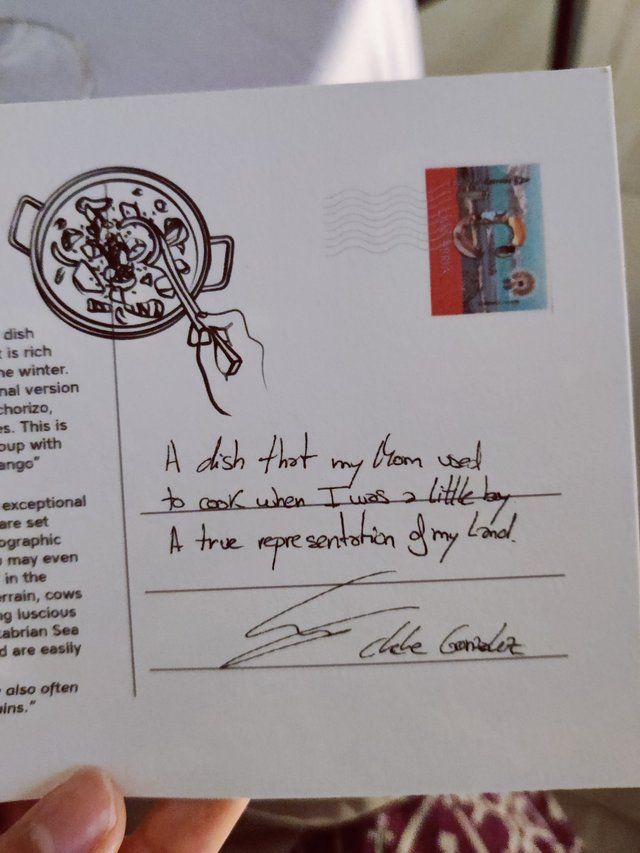 dish
is rich
winter.
nal version
chorizo,
This is
oup with
ango”
exceptional
are set
ographic
may even
in the
errain, cows
ng luscious
abrian Sea
d are easily
also often
ains.”
A dish that my Mom used
to cook when I was a little boy
A true representation of my Land.
González